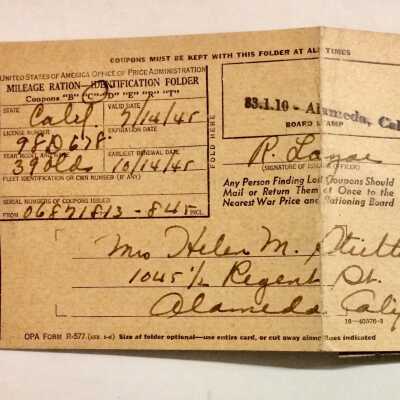 COUPONS MUST BE KEPT WITH THIS FOLDER AT ALL TIMES
UNITED STATES OF AMERICA OFFICE OF PRICE ADMINISTRATION
MILEAGE RATION—IDENTIFICATION FOLDER
Coupons "B" "C" "D" "E" "R" "T"
STATE
Calif.
VALID DATE
7/14/45
LICENSE NUMBER
98D678
YEAR MODEL AND MAKE
39 Olds
EARLIEST RENEWAL DATE
10/14/45
FLEET IDENTIFICATION OR CWN NUMBER (IF ANY)
SERIAL NUMBERS OF COUPONS ISSUED
FROM 06871813 - 845 INCL.
FOLD HERE
83.1.10 - Alameda, Cal
BOARD STAMP
R.
(SIGNATURE OF ISSUING OFFICER)
Any Person Finding Lost Coupons Should
Mail or Return Them at Once to the
Nearest War Price and Rationing Board
Mrs Helen M.
1045 1/2 Regent St.
Alameda Calif
16-40576-1
OPA FORM R-577 Size of folder optional—use entire card, or cut away along lines indicated